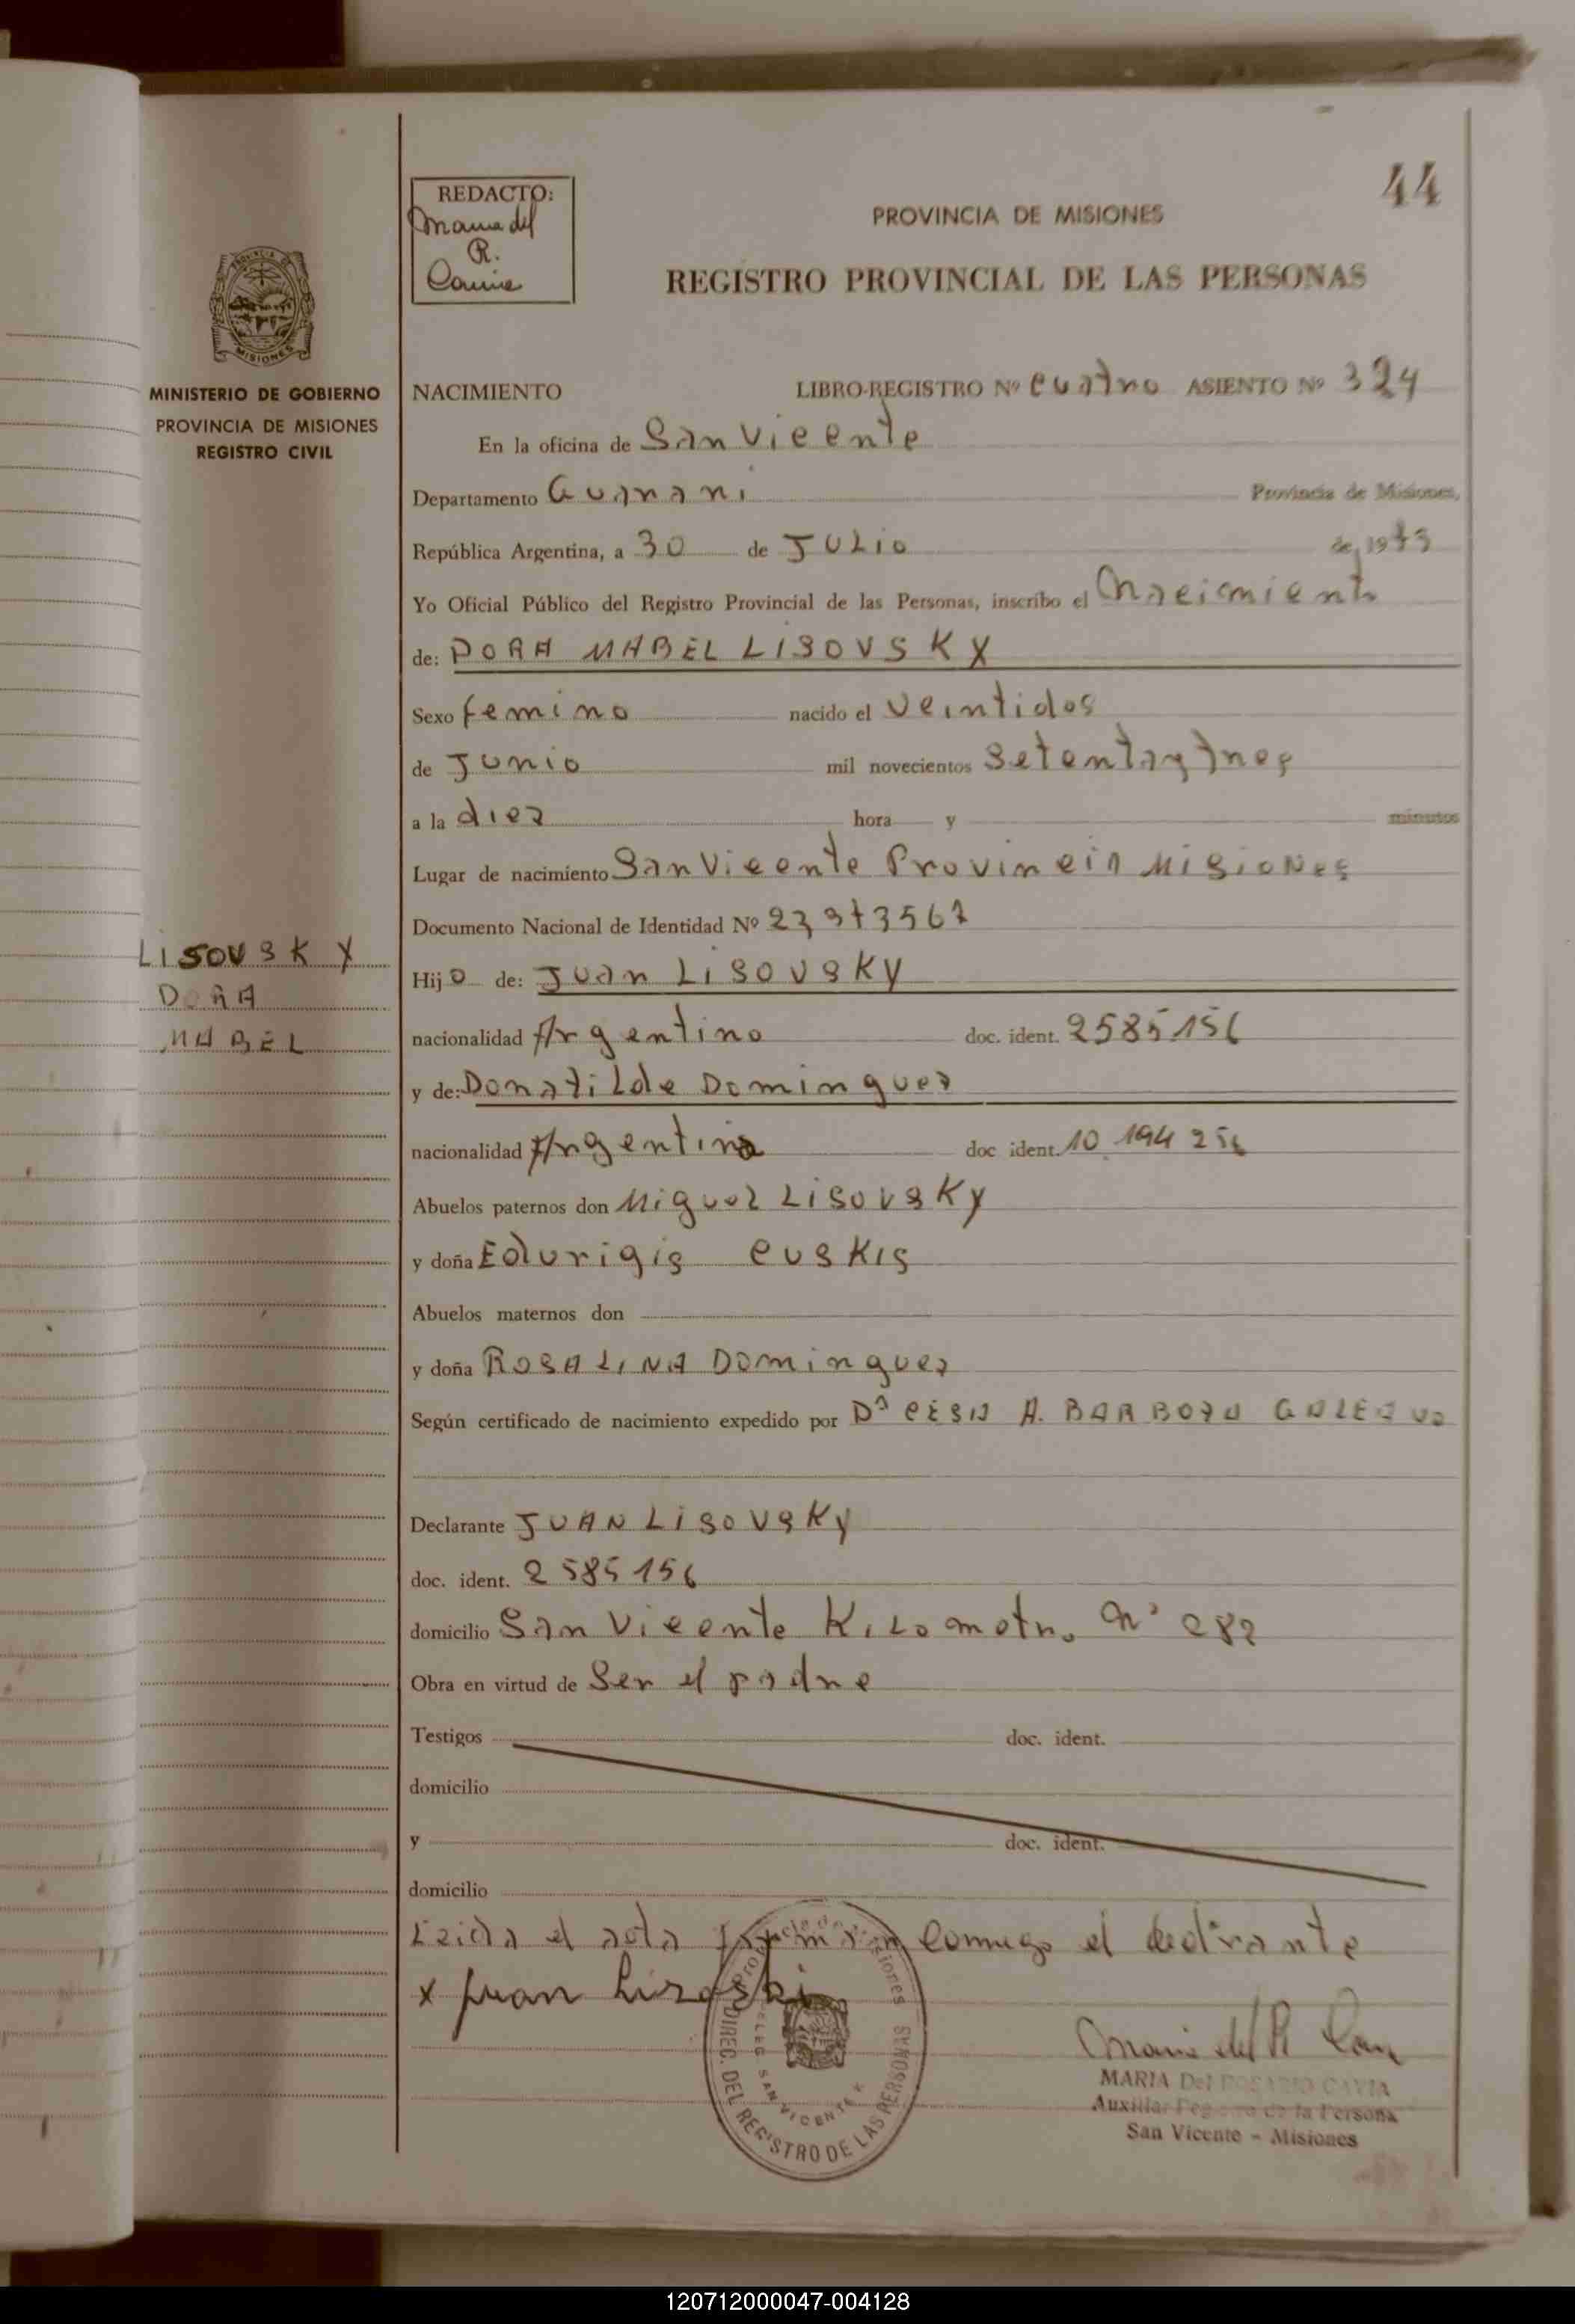 44
REDACTO:
Maria del
R.
PROVINCIA DE MISIONES
REGISTRO PROVINCIAL DE LAS PERSONAS
PROVINCIA DE MISIONES
MINISTERIO DE GOBIERNO
PROVINCIA DE MISIONES
REGISTRO CIVIL
NACIMIENTO LIBRO-REGISTRO Nº cuatro ASIENTO Nº 324
En la oficina de San Vicente
Departamento Guarani Provincia de Misiones,
República Argentina, a 30 de JULio de 1973
Yo Oficial Público del Registro Provincial de las Personas, inscribo el Nacimiento
de: DORA MABEL LISOVSKY
Sexo femino nacido el Veintidos
de Junio mil novecientos Setenta y tres
a la diez hora y minutos
Lugar de nacimiento San Vicente Provincia Misiones
Documento Nacional de Identidad Nº
LISOVSKY
DORA
MABEL
Hijo de: Juan LISOVSKY
nacionalidad Argentino doc. ident. 2585156
y de: Donatilde Dominguez
nacionalidad Argentina doc ident. 10.194 256
Abuelos paternos don Miguel LISOVSKY
y doña Edurigis cuskis
Abuelos maternos don
y doña ROSALINA Dominguez
Según certificado de nacimiento expedido por Dª A. BARBOZA
Declarante JUAN LISOVSKY
doc. ident. 2585156
domicilio San Vicente Kilometro Nº 282
Obra en virtud de Ser el padre
Testigos doc. ident.
domicilio
y doc. ident.
domicilio
Leida el acta conmigo el
x Juan
Provincia de Misiones
DIREC. DEL REGISTRO DE LAS PERSONAS
DELEG. SAN VICENTE
Maria del R
MARIA Del ROSARIO CAVIA
Auxiliar de la Persona
San Vicente - Misiones
120712000047-004128